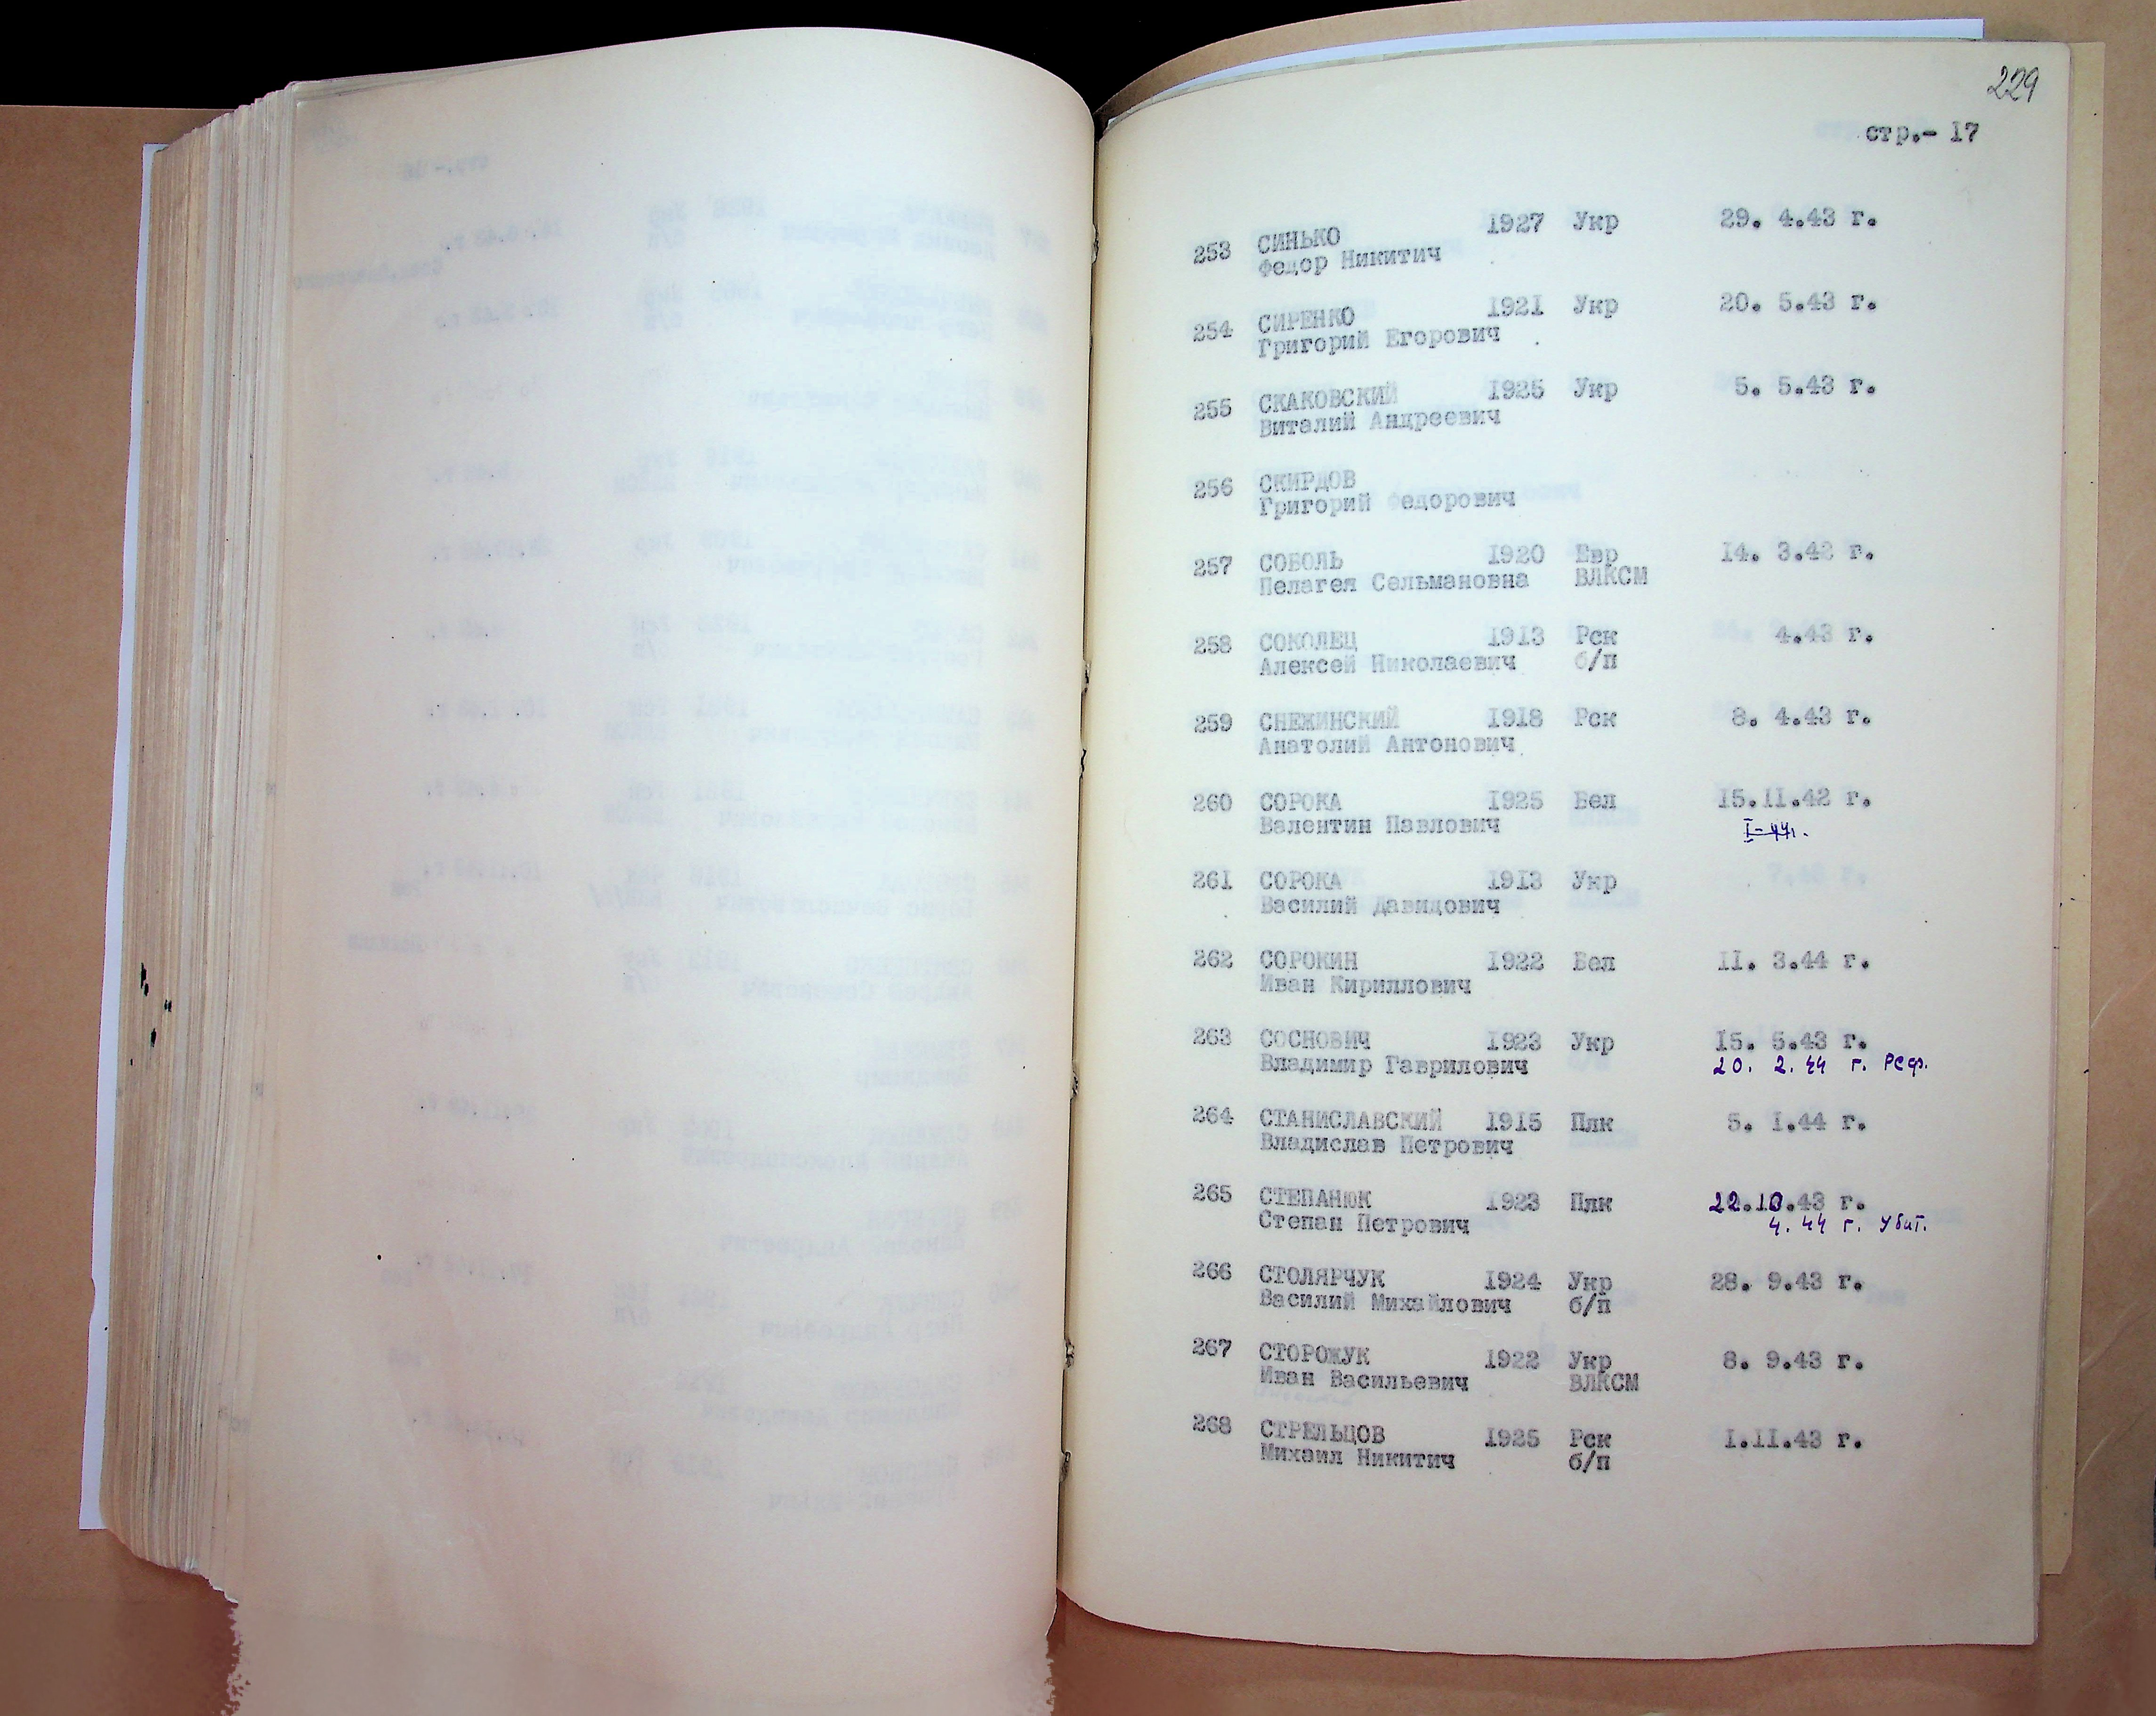 229
стр.- 17
253 СИНЬКО 1927 Укр 29. 4.43 г.
Федор Никитич
254 СИРЕНКО 1921 Укр 20. 5.43 г.
Григорий Егорович
255 СКАКОВСКИЙ 1925 Укр 5. 5.43 г.
Виталий Андреевич
256 СКИРДОВ
Григорий Федорович
257 СОБОЛЬ 1920 Евр 14. 3.42 г.
Пелагея Сельмановна ВЛКСМ
258 СОКОЛЕЦ 1913 Рск 4.43 г.
Алексей Николаевич б/п
259 СНЕЖИНСКИЙ 1918 Рск 8. 4.43 г.
Анатолий Антонович
260 СОРОКА 1925 Бел 15.II.42 г.
Валентин Павлович I-44г.
261 СОРОКА 1913 Укр
Василий Давидович
262 СОРОКИН 1922 Бел II. 3.44 г.
Иван Кириллович
263 СОСНОВИЧ 1923 Укр 15. 5.43 г.
Владимир Гаврилович 20. 2.44 г. РСФ.
264 СТАНИСЛАВСКИЙ 1915 Плк 5. I.44 г.
Владислав Петрович
265 СТЕПАНЮК 1923 Плк 22.10.43 г.
Степан Петрович 4. 44 г. Убит.
266 СТОЛЯРЧУК 1924 Укр 28. 9.43 г.
Василий Михайлович б/п
267 СТОРОЖУК 1922 Укр 8. 9.43 г.
Иван Васильевич ВЛКСМ
268 СТРЕЛЬЦОВ 1925 Рск I.II.43 г.
Михаил Никитич б/п